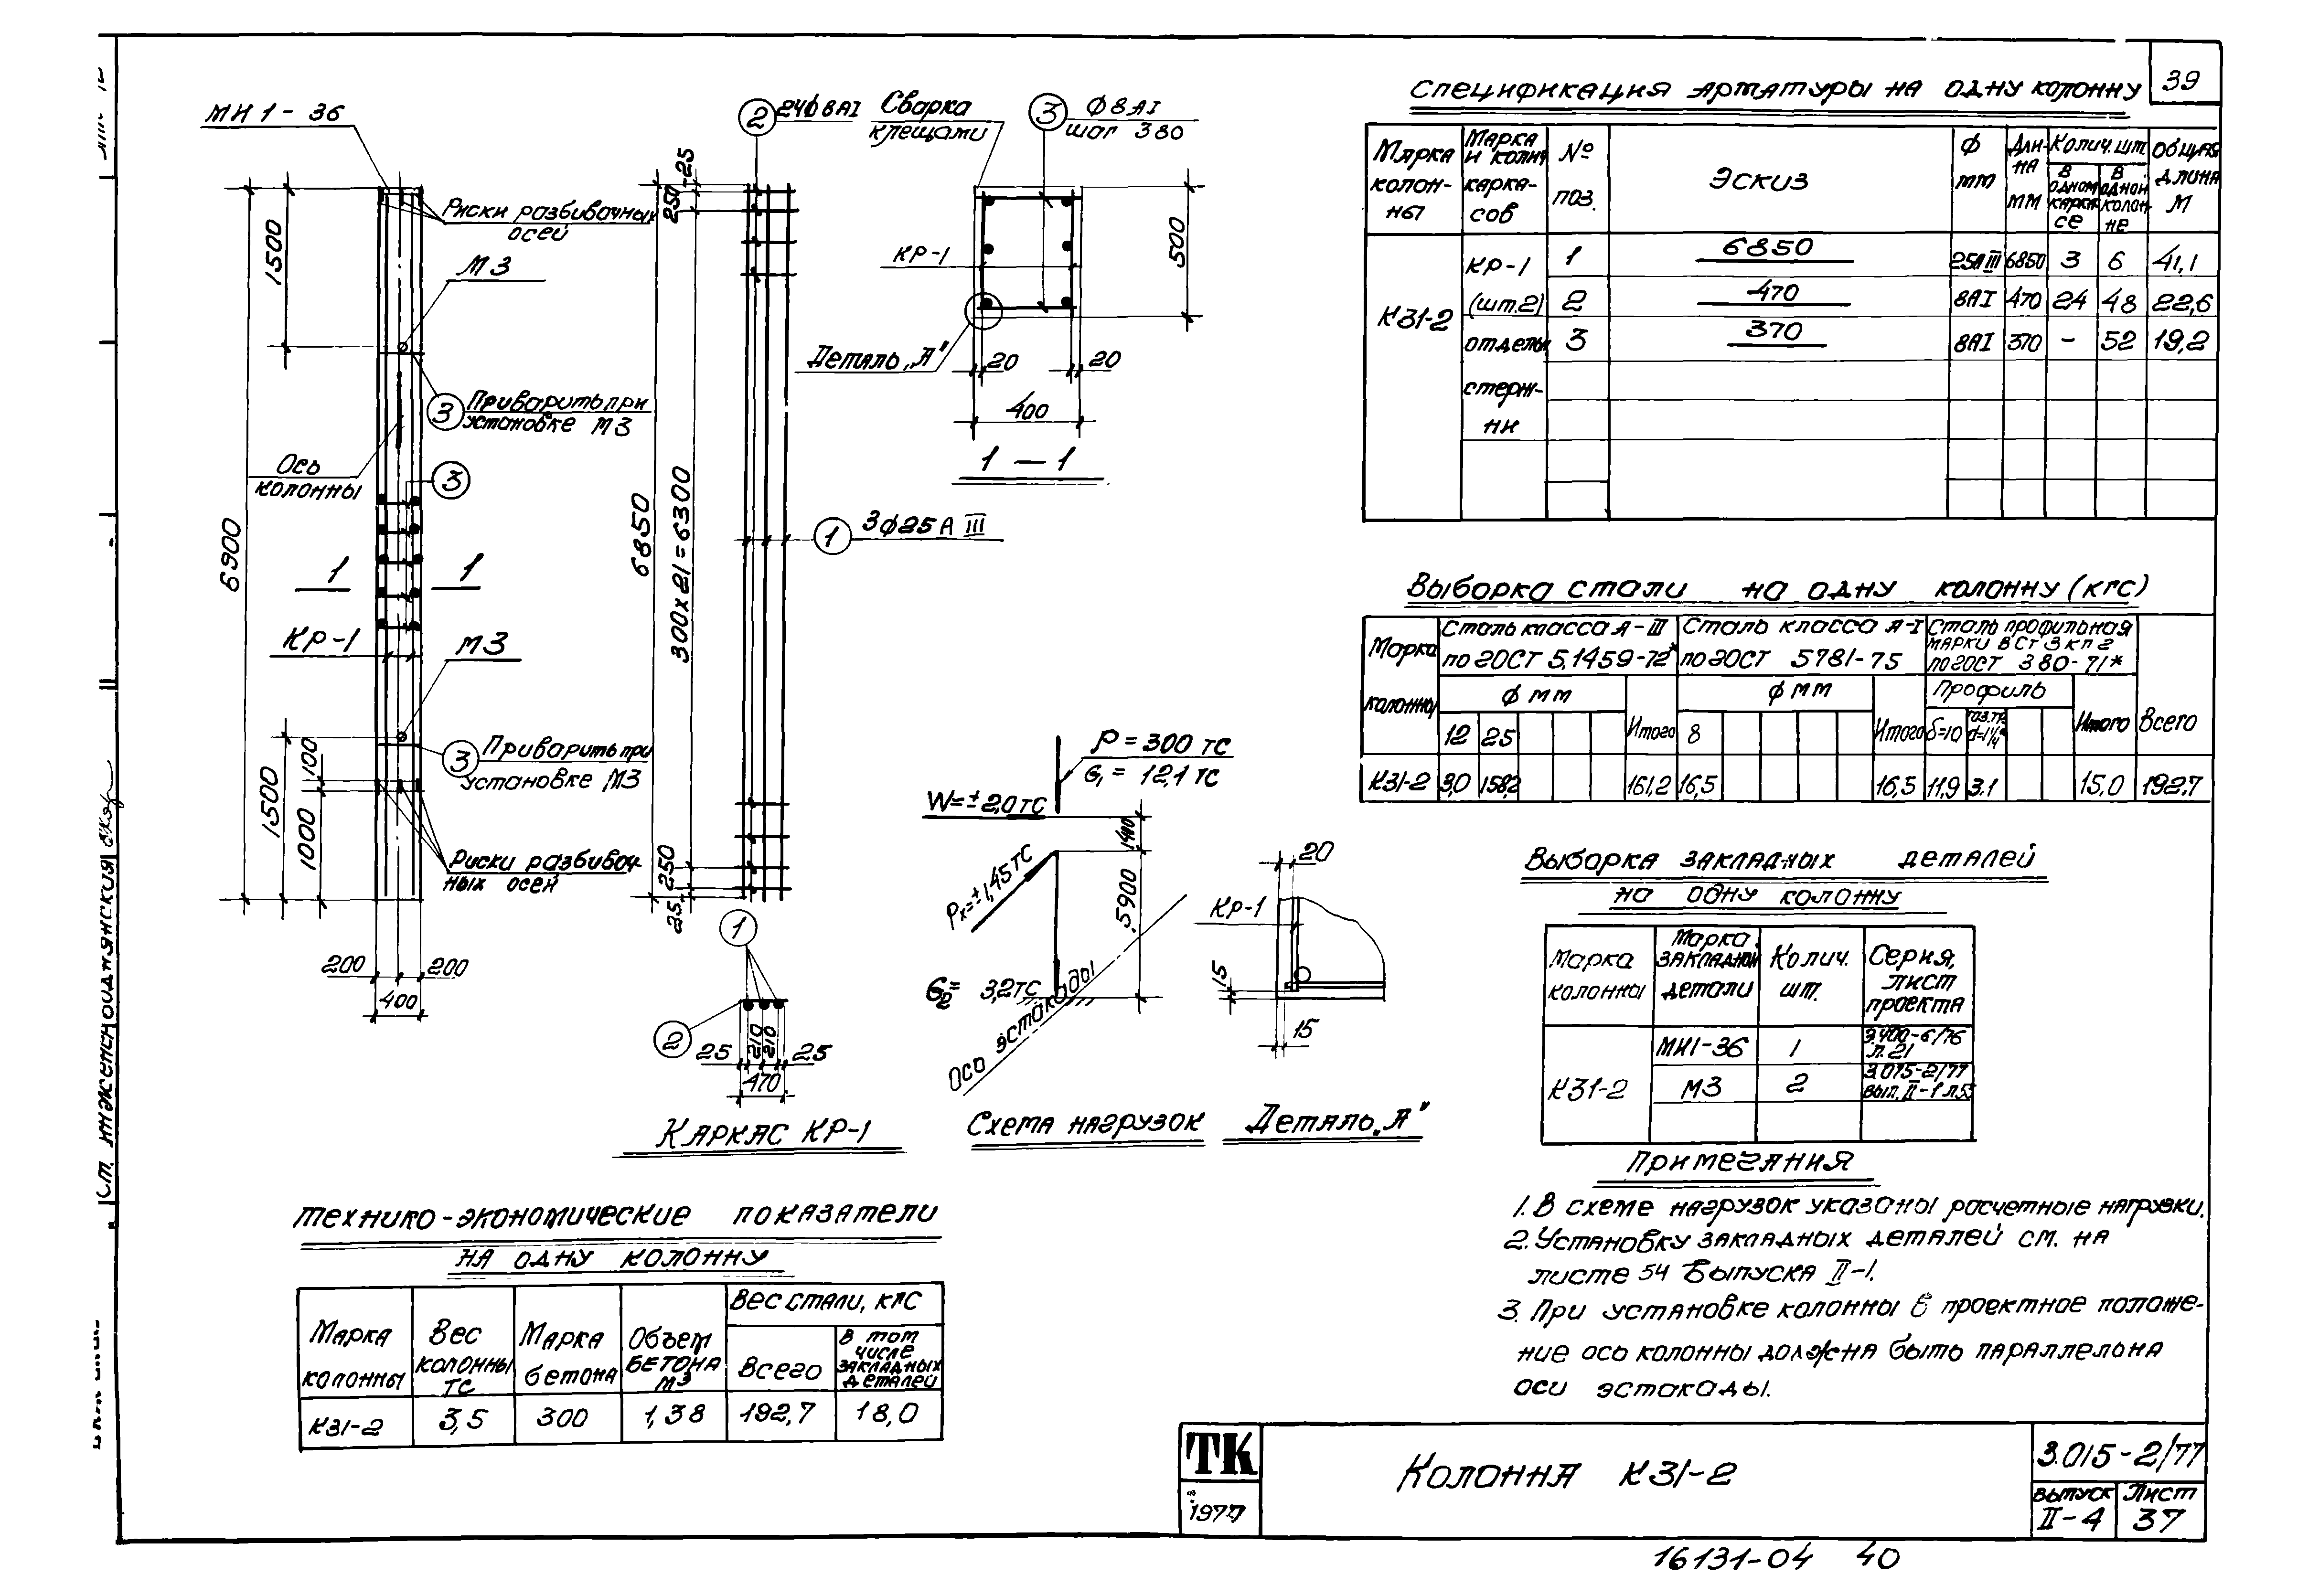 39
МН 1-36
Риски разбивочных
осей
М3
3 Приварить при
установке М3
Ось
колонны
3
1 1
КР-1
М3
3 Приварить при
установке М3
Риски разбивоч-
ных осей
6900
1500
1500
100
1000
200 200
400
2 24ф8АI
25
250
6850
300х21=6300
1 3ф25АIII
250
25
1
2
25 210 210 25
470
Каркас КР-1
Сварка
клещами
3 ф8АI
шаг 380
КР-1
500
Деталь „А"
20 20
400
1-1
P=300тс
G₁=12,1тс
W=±2,0тс
Pх=±1,45тс
5900
G₂=3,2тс
Ось эстокады
Схема нагрузок
20
КР-1
15
15
Деталь „А"
Спецификация арматуры на одну колонну
Марка колон-ны
Марка и колич. карка-сов
№ поз.
Эскиз
ф мм
Дли-на мм
Колич. шт.
В одном карка-се
В одной колон-не
Общая длина м
К31-2
КР-1 (шт.2)
1 6850 25АIII 6850 3 6 41,1
2 470 8АI 470 24 48 22,6
отдельн. стерж-ни
3 370 8АI 370 - 52 19,2
Выборка стали на одну колонну (кгс)
Марка колонны
Сталь класса А-III по ГОСТ 5.1459-72*
Сталь класса А-I по ГОСТ 5781-75
Сталь профильная марки ВСт3кп2 по ГОСТ 380-71*
ф мм ф мм Профиль
12 25 Итого 8 Итого δ=10 газ.тр. d=1¼" Итого Всего
К31-2 3,0 158,2 161,2 16,5 16,5 11,9 3.1 15,0 192,7
Выборка закладных деталей
на одну колонну
Марка колонны
Марка закладной детали
Колич. шт.
Серия, лист проекта
К31-2
МН1-36 1 3.400-6/76 л.21
М3 2 3.015-2/77 вып.II-1 л.53
Примечания
1. В схеме нагрузок указаны расчетные нагрузки.
2. Установку закладных деталей см. на
листе 54 выпуска II-1.
3. При установке колонны в проектное положе-
ние ось колонны должна быть параллельна
оси эстокады.
Технико-экономические показатели
на одну колонну
Марка колонны
Вес колонны тс
Марка бетона
Объем бетона м3
Вес стали, кгс
Всего
В том числе закладных деталей
К31-2 3,5 300 1,38 192,7 18,0
Ст. инженер
ТК
1977
Колонна К31-2
3.015-2/77
выпуск Лист
II-4 37
16131-04 40